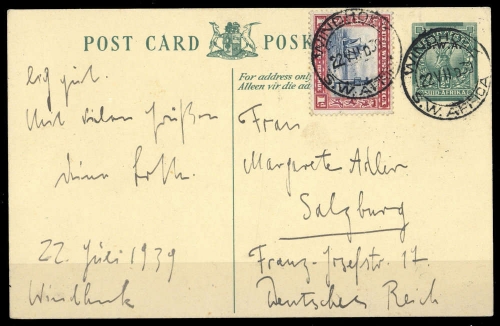 POST CARD POSK
For address only
Alleen vir die ad
WINDHOEK
22 VII
S.W. AFRICA
WINDHOEK
22 VII
S.W. AFRICA
S.W.A.
SUID-AFRIKA
gut.
Mit vielen Grüßen
deine
22. Juli 1939
Windhuk
Frau
Margarete Adler
Salzburg
Franz-Josefstr. 17
Deutsches Reich